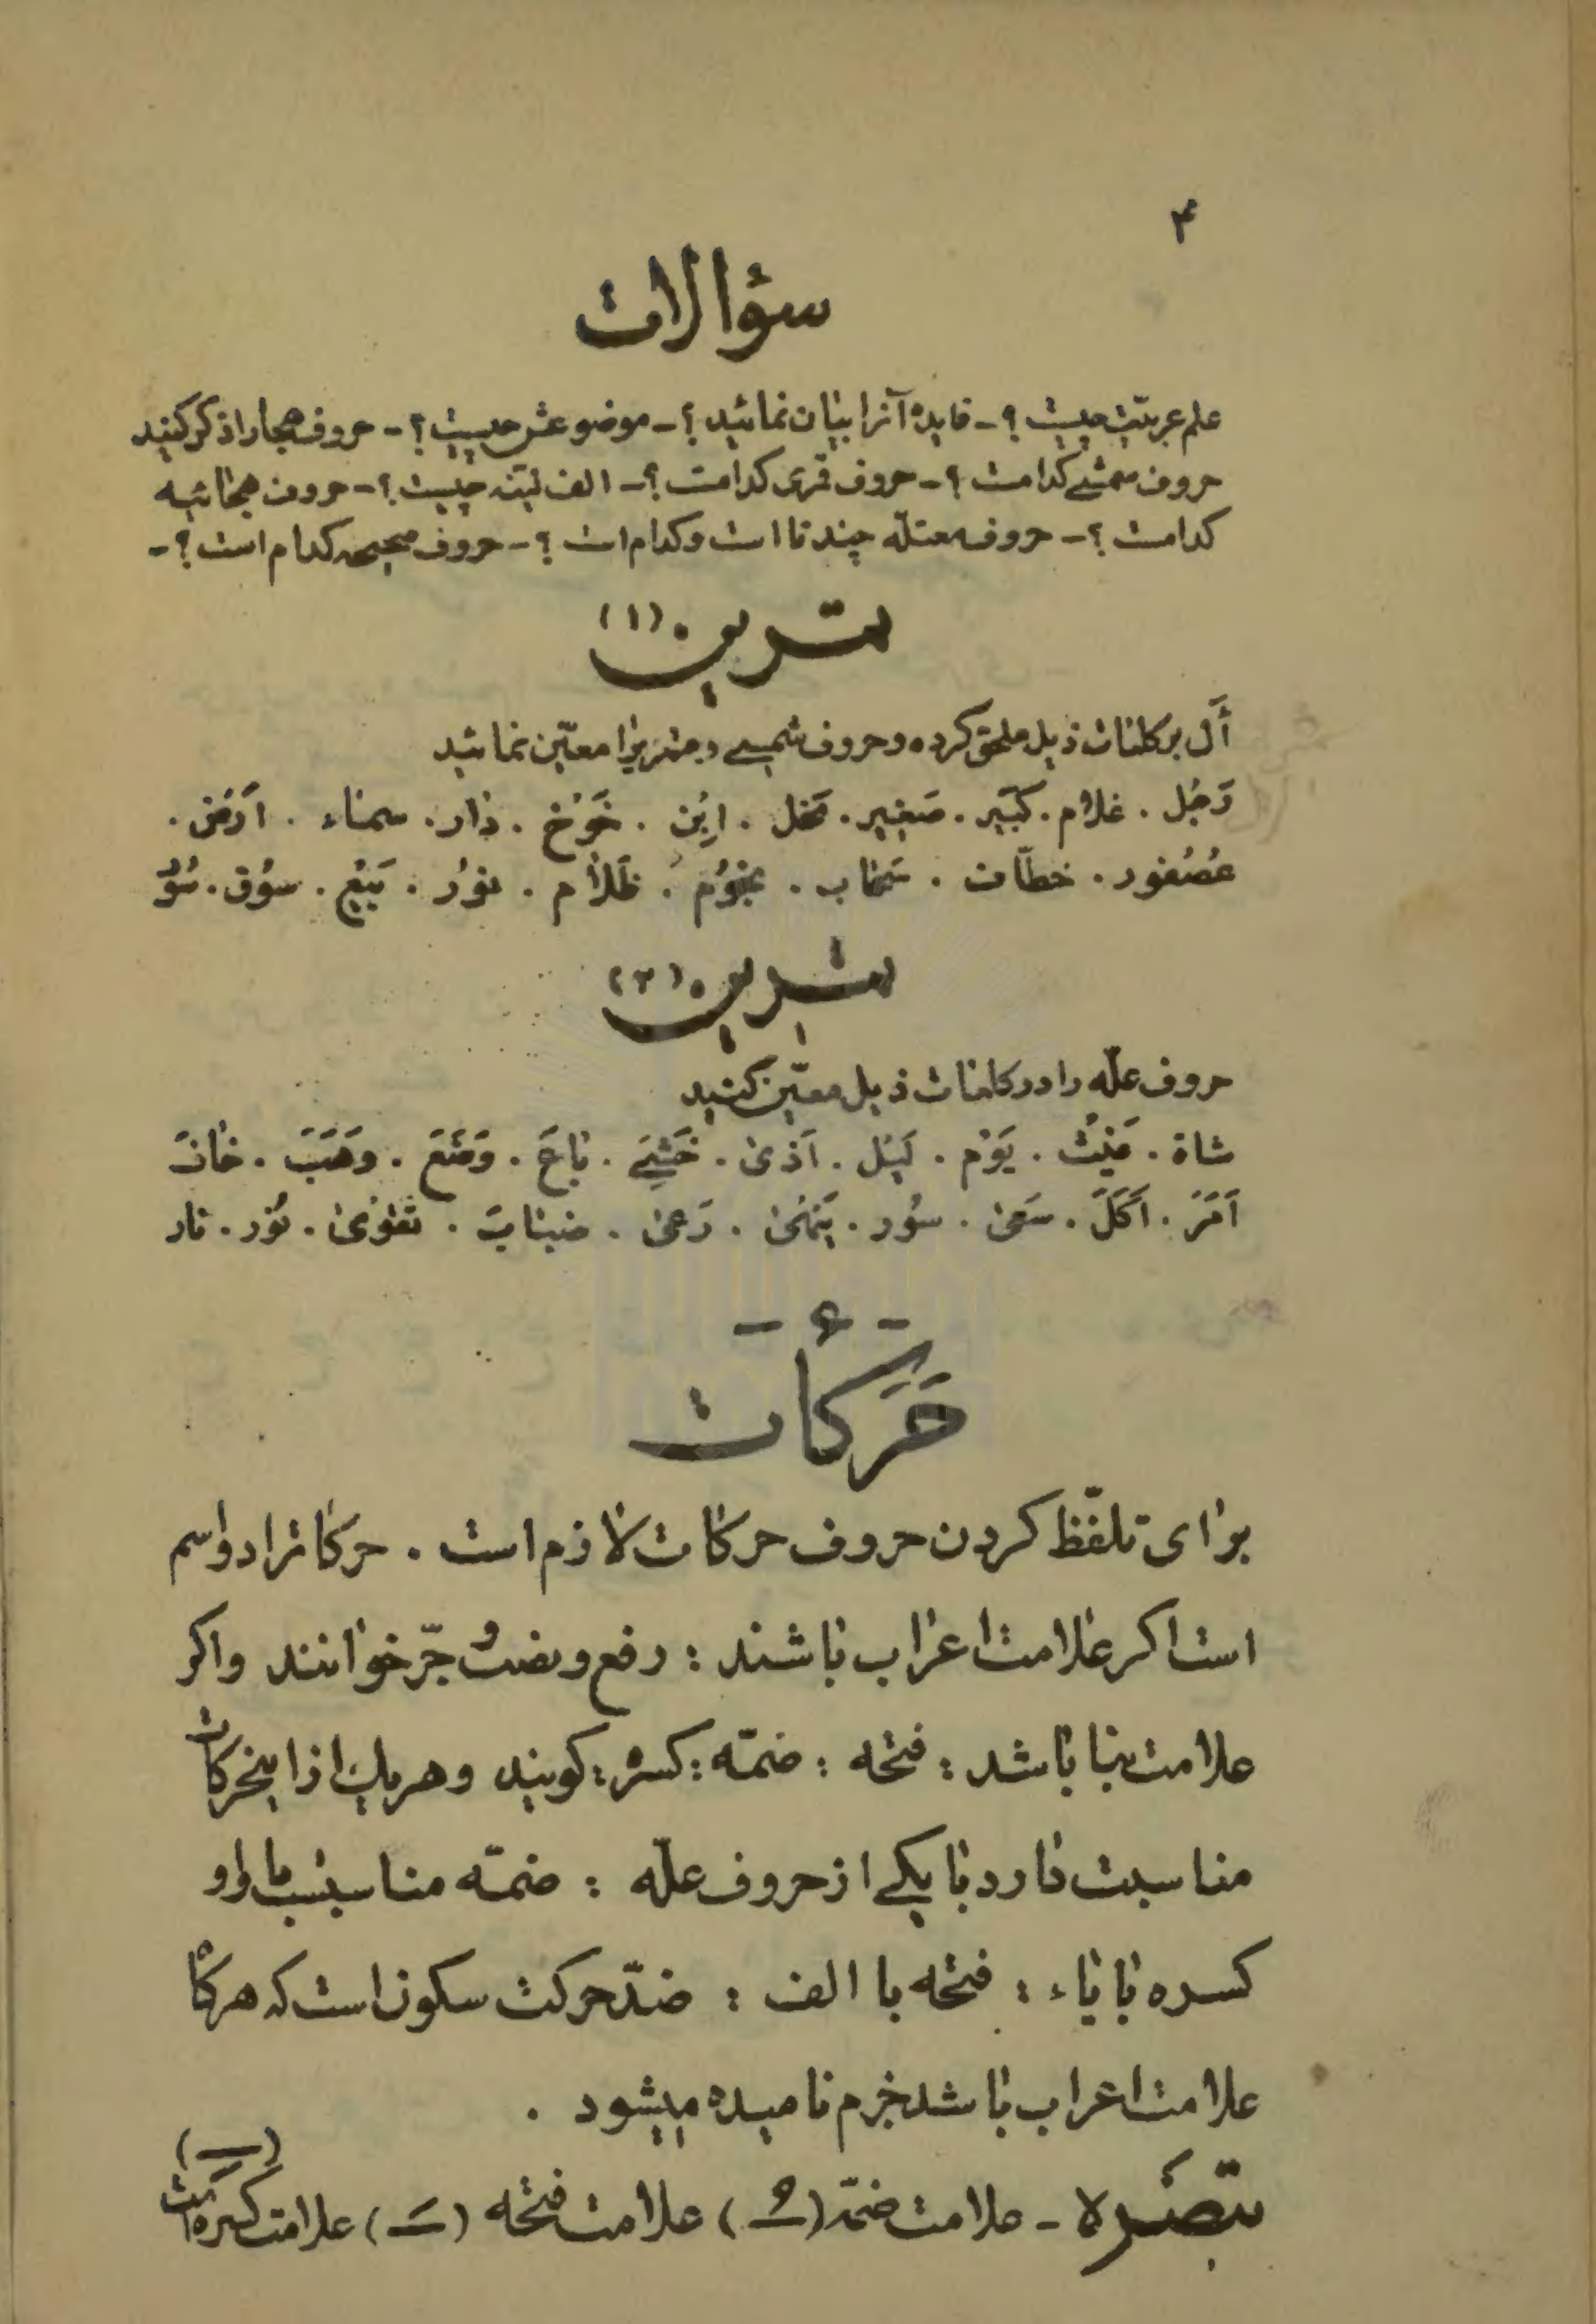 ۴
سؤالات
علم عربیّت چیست ؟ - فایدۀ آنرا بیان نمائید ؟ - موضوعش چیست ؟ - حروف هجا را ذکر کنید
حروف شمسی کدامست ؟ - حروف قمری کدامست ؟ - الف لیّنه چیست ؟ - حروف هجائیه
کدامست ؟ - حروف معتلّه چند تا است و کدام است ؟ - حروف صحیحه کدام است ؟ -
تمرین (۱)
أَل بر کلمات ذیل ملحق کرده و حروف شمسی و قمریرا معیّن نمائید
رَجُل . غلام . کَبیر . صَغیر . نَخل . اِبْن . خَوْخ . دار . سماء . اَرْض .
عُصْفور . خطّاف . سَحاب . نجوُم . ظَلام . نوُر . بَیْع . سوُق .
تمرین (۲)
حروف علّه را در کلمات ذیل معیّن کنید
شاة . مَیْت . یَوْم . لَیْل . اَذیٰ . خَشِیَ . باعَ . وَضَعَ . وَهَبَ . خافَ
اَمَرَ . اَکَلَ . سَعیٰ . سوُر . یَنهیٰ . رَمیٰ . ضباب . تَقویٰ . نوُر . نار
حَرَکات
برای تلفّظ کردن حروف حرکات لازم است . حرکاترا دو اسم
است اکر علامت اعراب باشند : رفع و نصب و جرّ خوانند و اکر
علامت بنا باشد : فتحه : ضمّه : کسره : کویند و هریک از اینحرکات
مناسبت دارد با یکی از حروف علّه : ضمّه مناسبست با واو
کسره با یاء : فتحه با الف : ضدّ حرکت سکون است که هرکاه
علامت اعراب باشد جزم نامیده میشود .
تبصَره - علامت ضمّه (ـُ) علامت فتحه (ـَ) علامت کسره (ـِ) است